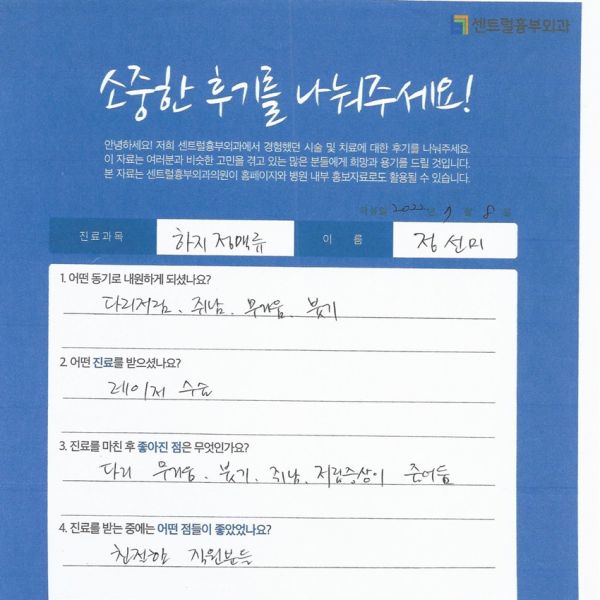 센트럴흉부외과
소중한 후기를 나눠주세요!
안녕하세요! 저희 센트럴흉부외과에서 경험했던 시술 및 치료에 대한 후기를 나눠주세요.
이 자료는 여러분과 비슷한 고민을 겪고 있는 많은 분들에게 희망과 용기를 드릴 것입니다.
본 자료는 센트럴흉부외과의원이 홈페이지와 병원 내부 홍보자료로도 활용될 수 있습니다.
작성일 2022 년 9 월 8 일
진료과목 하지정맥류 이 름 정선미
1. 어떤 동기로 내원하게 되셨나요?
다리저림、쥐남、무거움、붓기
2. 어떤 진료를 받으셨나요?
레이저 수술
3. 진료를 마친 후 좋아진 점은 무엇인가요?
다리 무거움、붓기、쥐남、저림증상이 줄어듬
4. 진료를 받는 중에는 어떤 점들이 좋았었나요?
친절함 직원분들